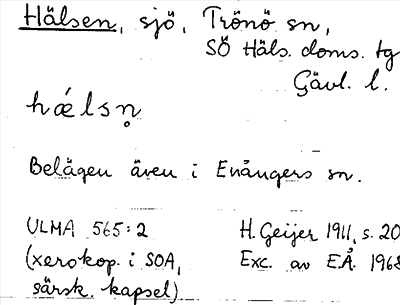 Hälsen, sjö, Trönö sn,
SÖ Häls. doms. tg
Gävl. l.
hǽlsn̥
Belägen även i Enångers sn.
ULMA 565:2
(xerokop. i SOA,
särsk. kapsel)
H. Geijer 1911, s. 20
Exc. av E.Å. 1968